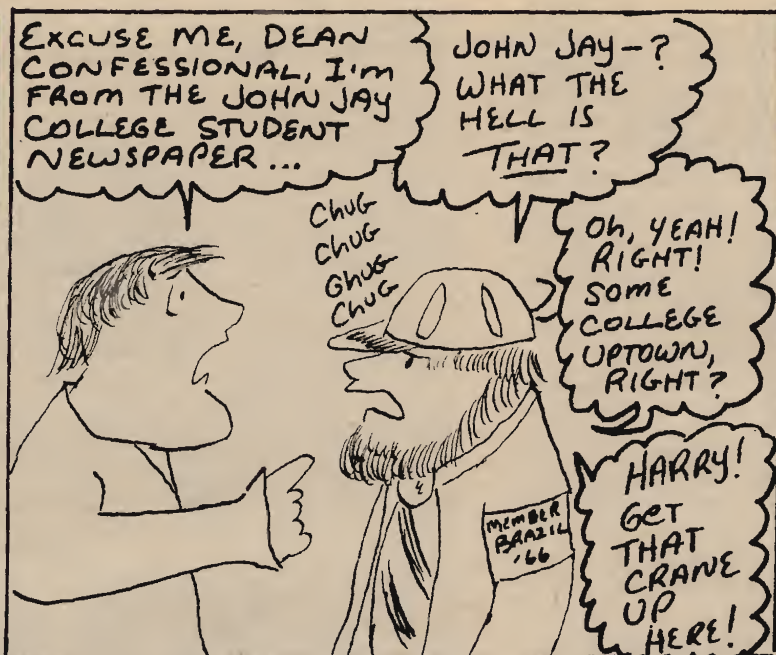 EXCUSE ME, DEAN
CONFESSIONAL, I'm
FROM THE JOHN JAY
COLLEGE STUDENT
NEWSPAPER ...
JOHN JAY-?
WHAT THE
HELL IS
THAT?
ChuG
ChuG
GhuG
ChuG
Oh, YEAH!
RIGHT!
SOME
COLLEGE
UPTOWN,
RIGHT?
MEMBER
BRAZIL
'66
HARRY!
GET
THAT
CRANE
UP
HERE!